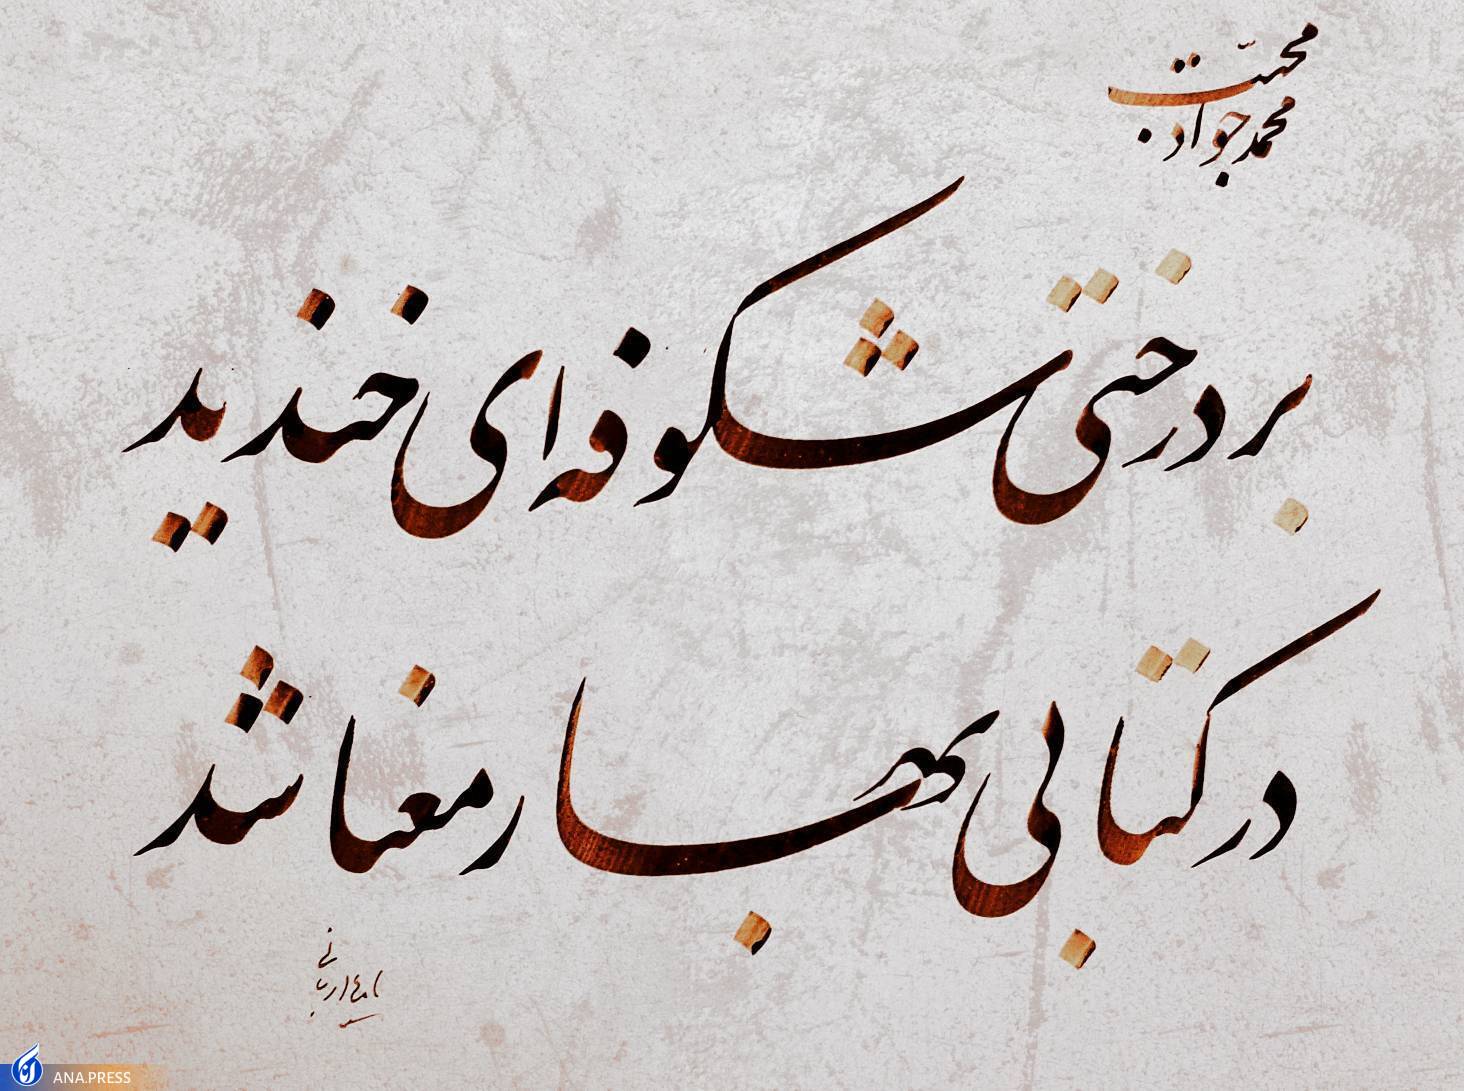 محمدجواد محبّت
بر درختی شکوفه‌ای خندید
در کتابی بهار معنا شد
ANA.PRESS